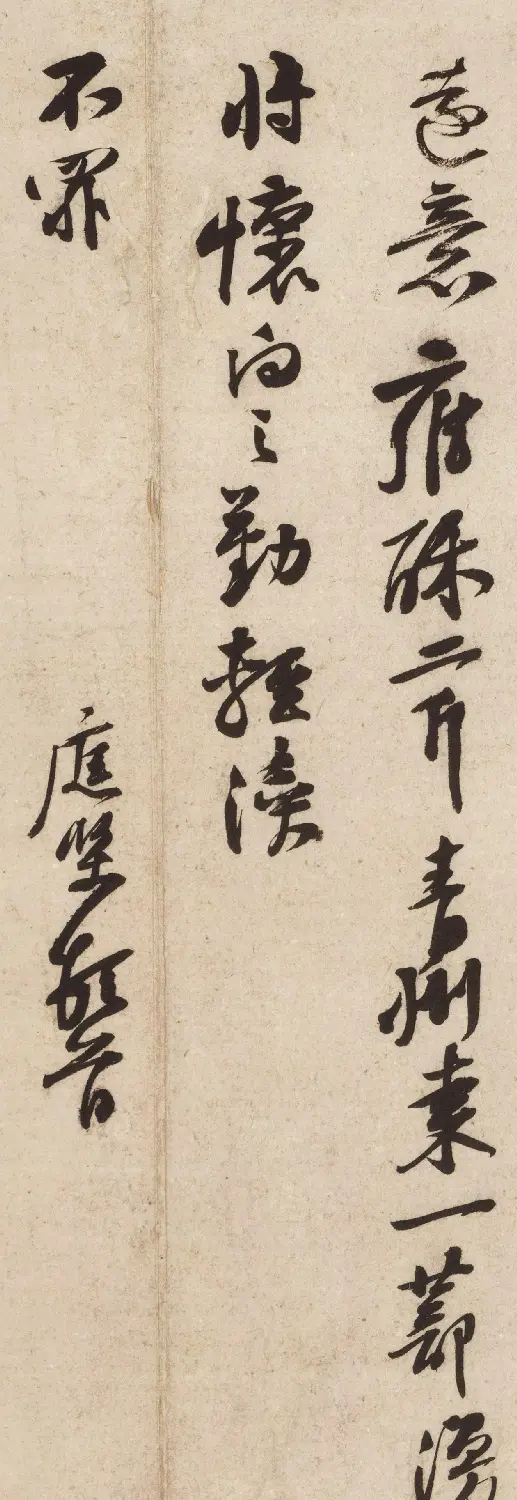 遠意雍酥二斤青州棗一蔀漫
將懷向之勤輕瀆
不罪　庭堅頓首